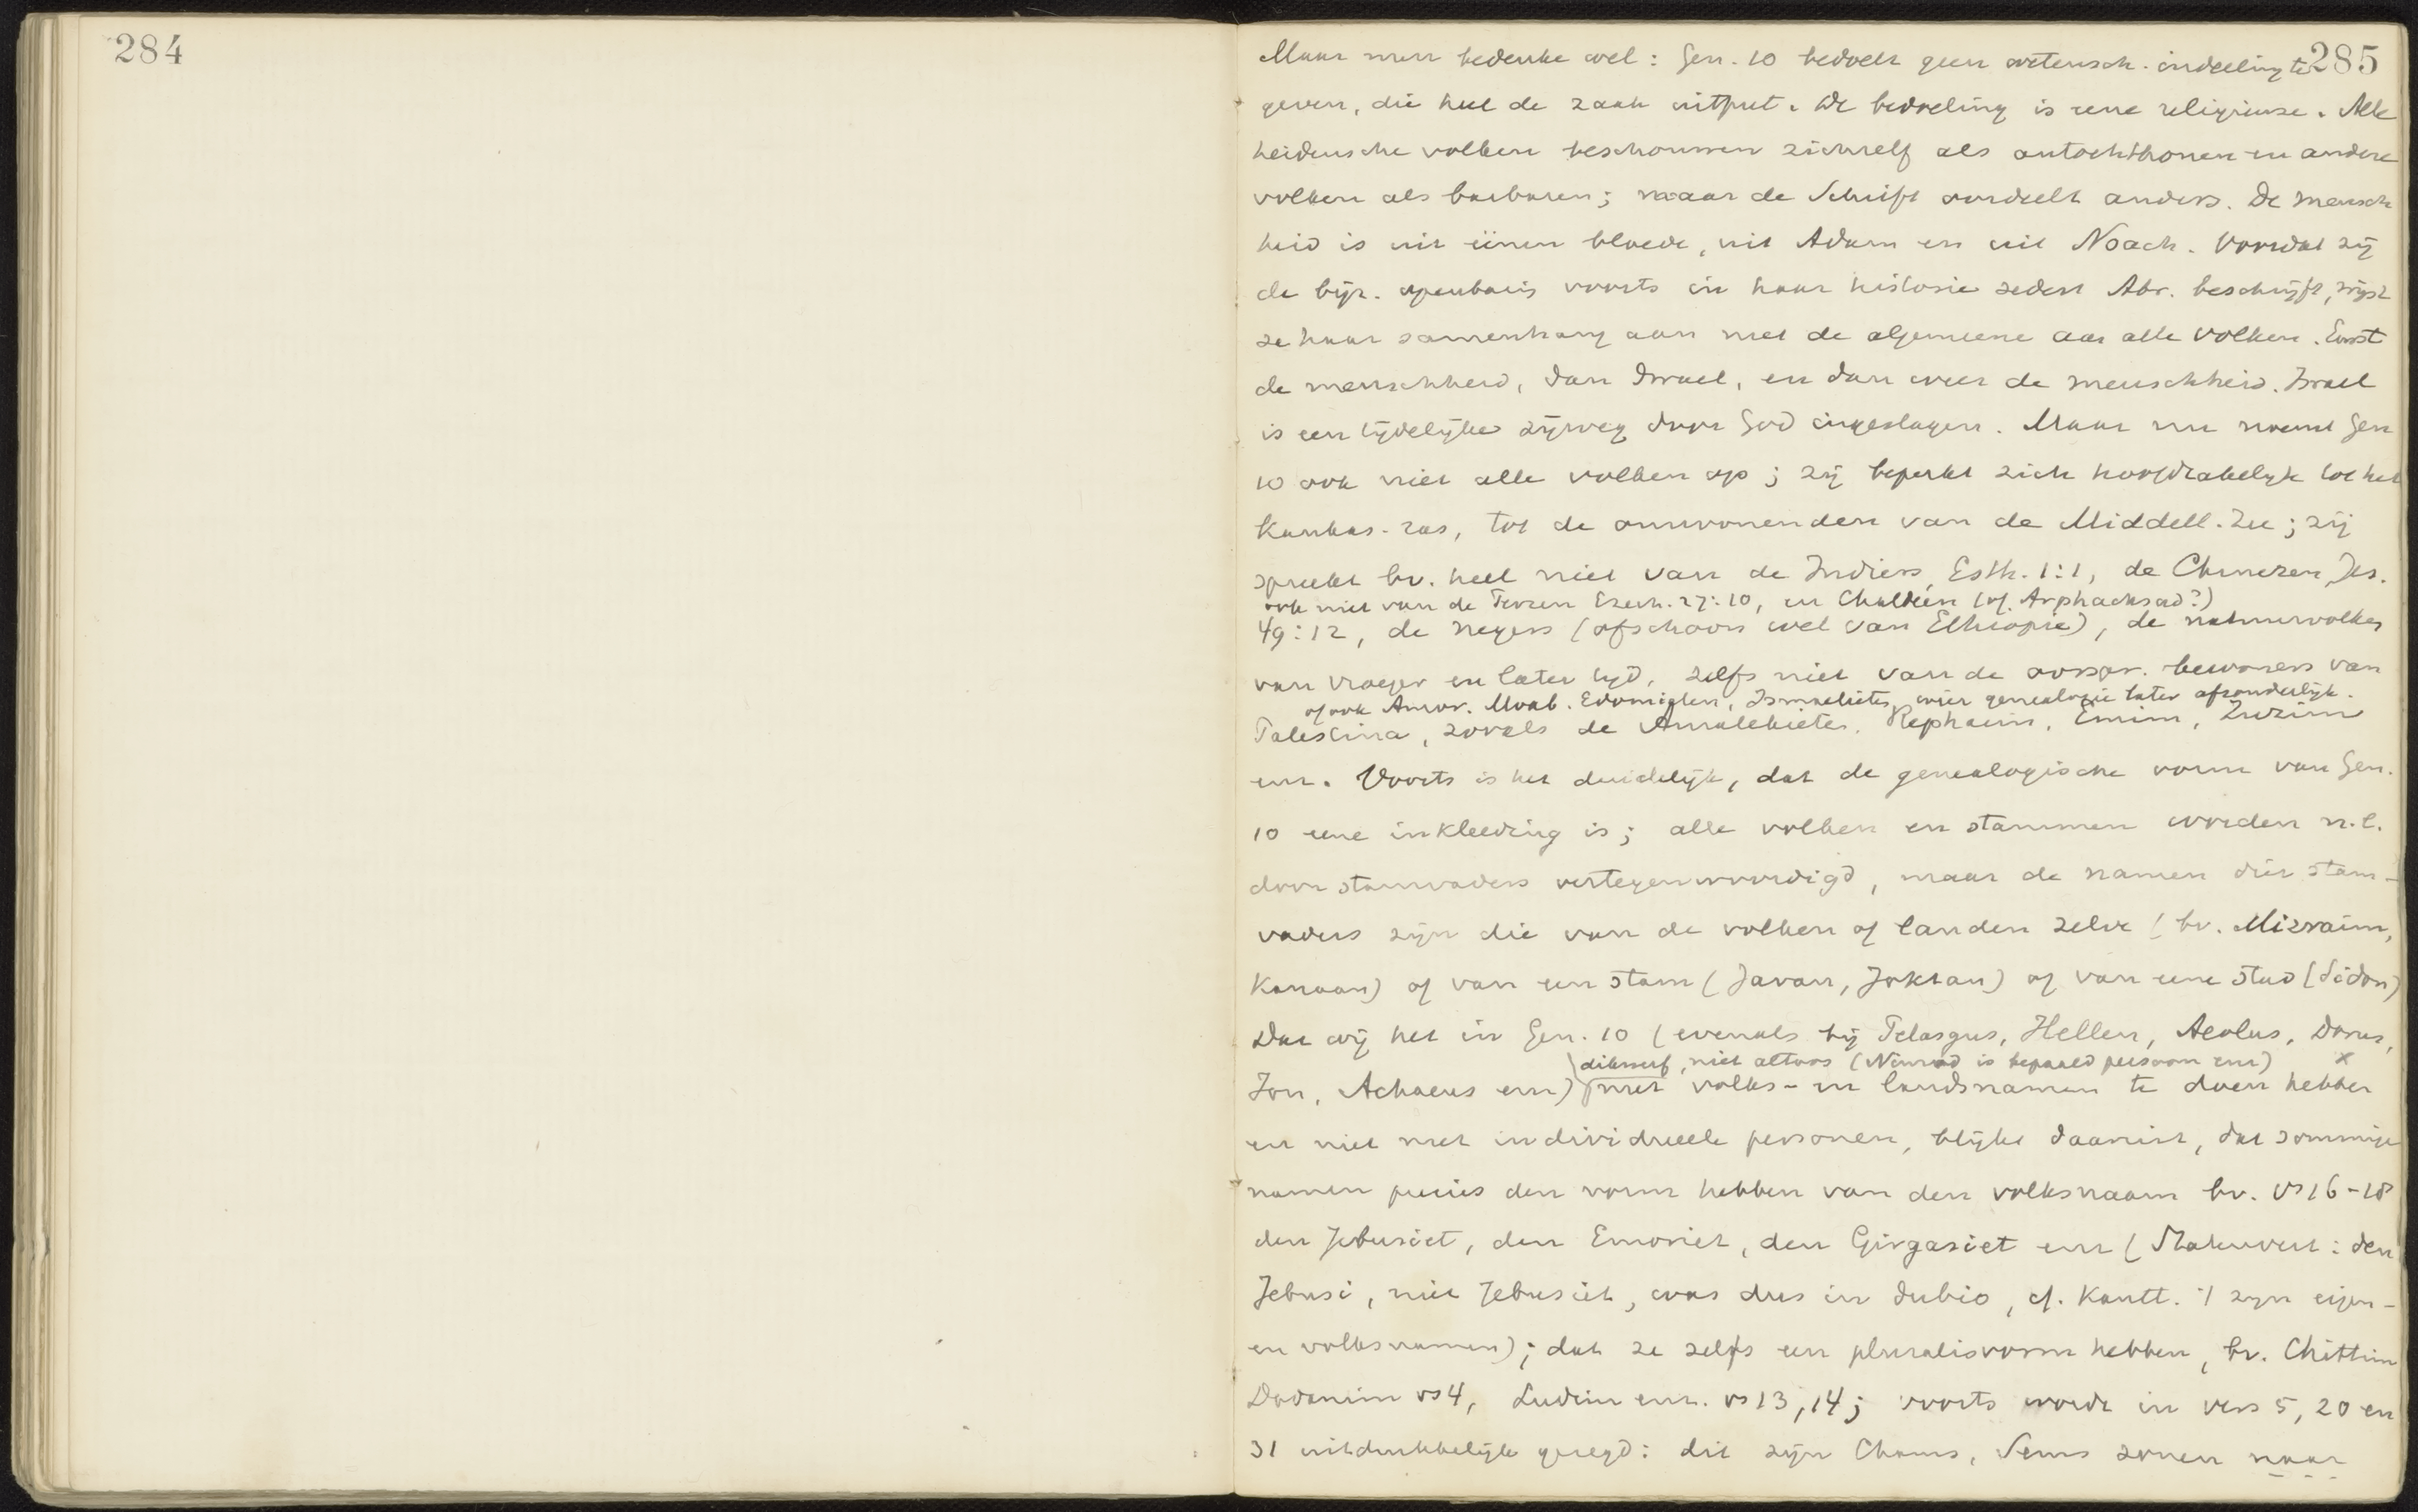 284
285
Maar men bedenke wel: Gen. 10 bedoelt geen wetensch. indeeling te
geven, die heel de zaak uitput. De bedoeling is eene religieuse. Alle
heidensche volken beschouwen zichzelf als autochthonen en andere
volken als barbaren; maar de Schrift oordeelt anders. De mensch
heid is uit éénen bloede, uit Adam en uit Noach. Voordat zij
de bijz. openbaring voorts in haar historie sedert Abr. beschrijft, wijst
ze haar samenhang aan met de algemeene aan alle volken. Eerst
de menschheid, dan Israel, en dan weer de menschheid. Israel
is een tijdelijke zijweg door God ingeslagen. Maar nu noemt Gen
10 ook niet alle volken op; zij beperkt zich hoofdzakelijk tot het
Kaukas. ras, tot de omwonenden van de Middell. Zee; zij
spreekt bv. heel niet van de Indiers, Esth. 1:1, de Chinezen, Jes.
ook niet van de Perzen Ezech. 27:10, en Chaldeën (of. Arphachsad?)
49:12, de negers (ofschoon wel van Ethiopie), de natuurvolken
van vroeger en later tijd, zelfs niet van de oorspr. bewoners van
of ook Ammon. Moab. Edomieten, Ismaelieten, wier genealogie later afzonderlijk.
Palestina, zooals de Amalekieten, Rephaim, Emim, Zuzim
enz. Voorts is het duidelijk, dat de genealogische vorm van Gen.
10 eene inkleeding is; alle volken en stammen worden n.l.
door stamvaders vertegenwoordigd, maar de namen dier stam-
vaders zijn die van de volken of landen zelve (bv. Mizraim,
Kanaan) of van een stam (Javan, Joktan) of van eene stad (Sidon)
Dat wij het in Gen. 10 (evenals bij Pelasgus, Hellen, Aeolus, Dorus,
dikwerf, niet altoos (Nimrod is bepaald persoon enz) x
Ion, Achaeus enz) met volks- en landsnamen te doen hebben
en niet met individueele personen, blijkt daaruit, dat sommige
namen precies den vorm hebben van den volksnaam bv. vs 16-18
den Jebusiet, den Emoriet, den Girgasiet enz (Statenvert: den
Jebusi, niet Jebusiet, was dus in dubio, cf. Kantt. 't zijn eigen-
en volksnamen); dat ze zelfs een pluralisvorm hebben, bv. Chittim
Dodanim vs 4, Ludim enz. vs 13, 14; voorts wordt in vers 5, 20 en
31 uitdrukkelijk gezegd: dit zijn Chams, Sems zonen naar